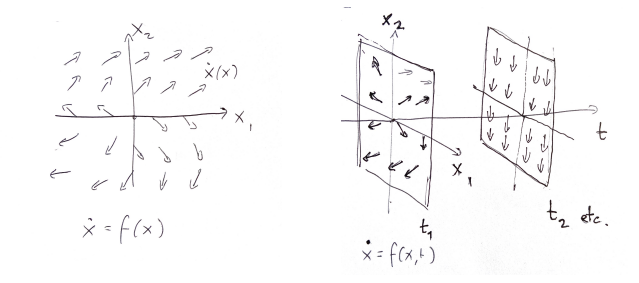 x₂
ẋ(x)
x₁
ẋ = f(x)
x₂
x₁
t
t₁
t₂ etc.
ẋ = f(x,t)